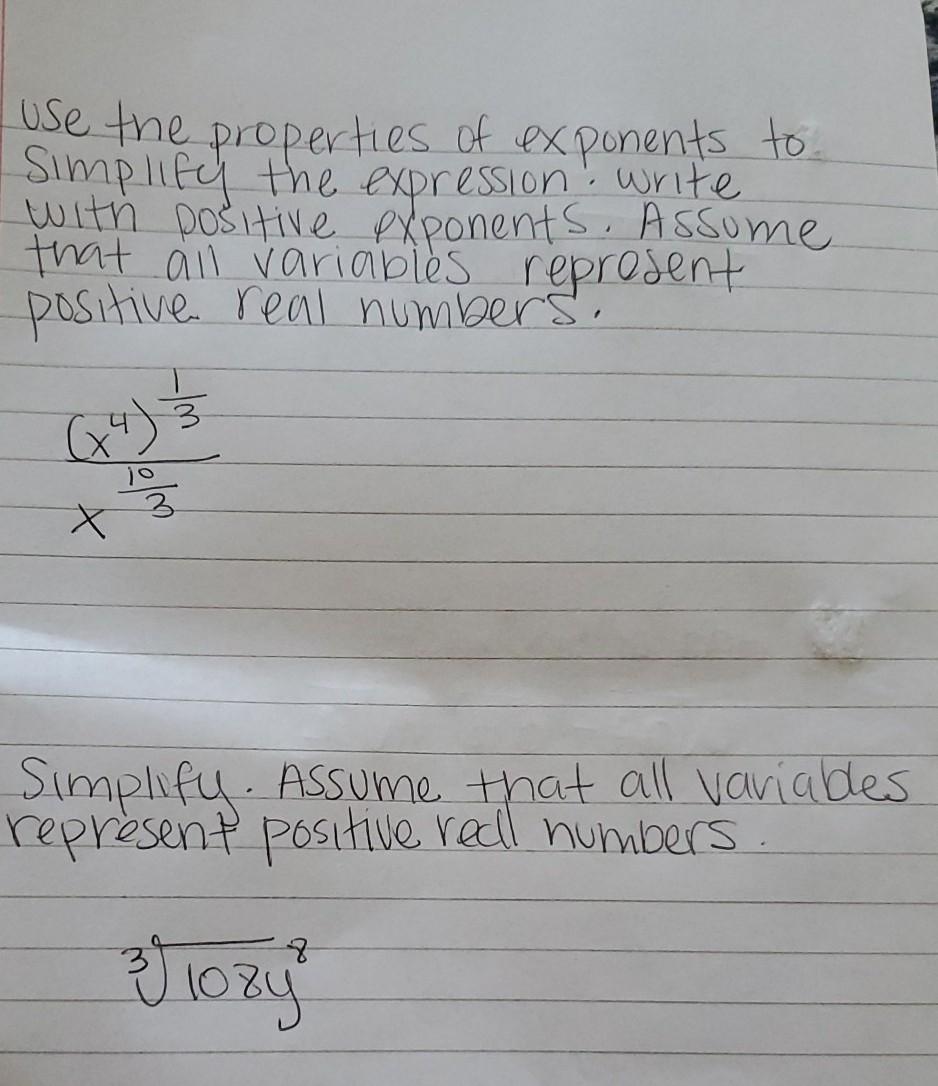 Use the properties of exponents to
simplify the expression. Write
with positive exponents. Assume
that all variables represent
positive real numbers.
(x⁴)^(1/3)
x^(10/3)
Simplify. Assume that all variables
represent positive real numbers.
³√108y⁸